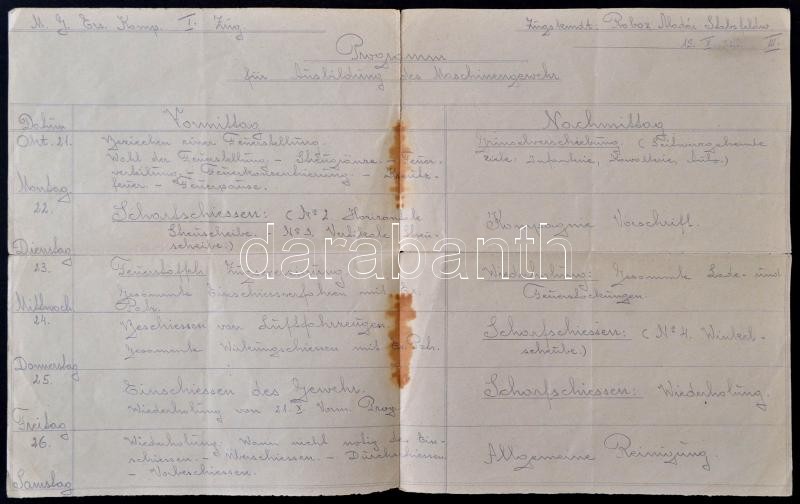 M. G. Ers. Komp. I. Zug.
Zugskmdt. Roboz Aladár Stabsfeldw.
Programm
für Ausbildung des Maschinengewehr
Datum Vormittag Nachmittag
Okt. 21. Beziehen einer Feuerstellung.
Wahl der Feuerstellung. - Streugränze. - Feuer-
verteilung - Feuerkonzentrierung. - Kreutz-
feuer. - Feuerpause.
(Führungsgelenke
ziele: Infanterie, Kavallerie, Auto.)
Montag
22. Scharfschiessen: (No 2. Horizontale
Streuscheibe. No 3. Vertikale Streu-
scheibe.)
Kompagnie Vorschrift.
Dienstag
23. Feuerstaffel
Gesammte Einschiessverfahren mit Ex.
Patr.
Wiederholung: Gesammte Lade- und
Feuerstockungen.
Mittwoch
24. Beschiessen von Luftfahrzeugen.
Gesammte Wirkungschiessen mit Ex. Patr.
Scharfschiessen: (No 4. Winkel-
scheibe.)
Donnerstag
25. Einschiessen des Gewehr.
Wiederholung von 21. X. Vorm. Prog.
Scharfschiessen: Wiederholung.
Freitag
26. Wiederholung: Wann nicht nötig das Ein-
schiessen. - Überschiessen. - Durchschiessen
- Vorbeschiessen.
Allgemeine Reinigung.
Samstag
darabanth